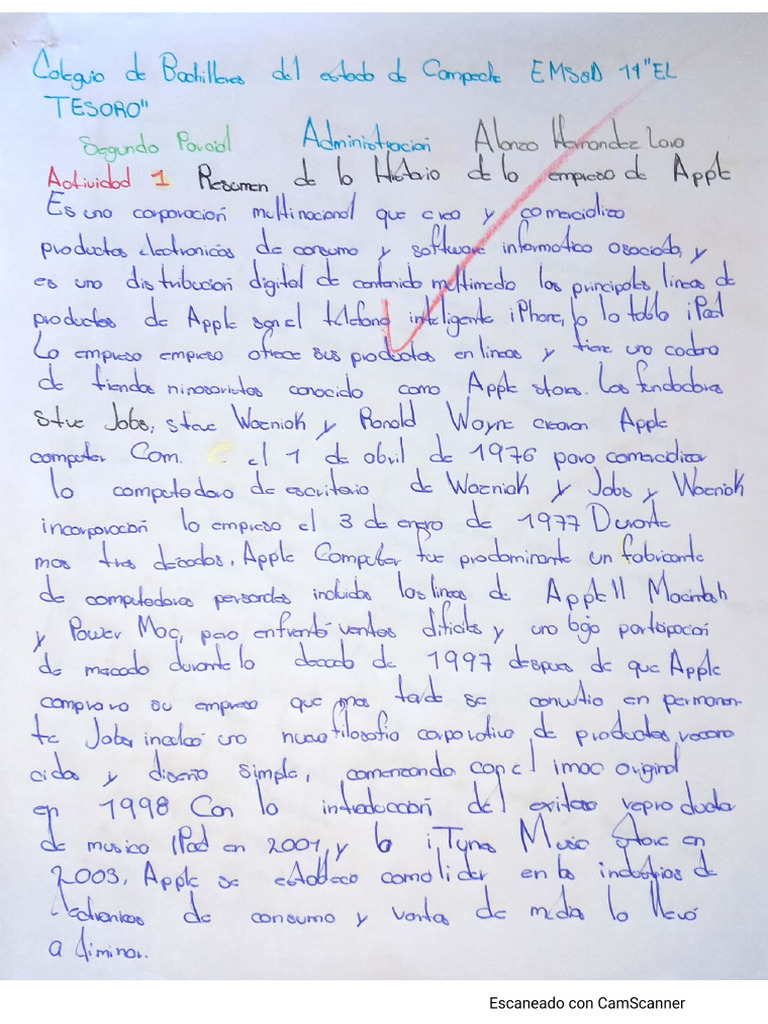 Coleguio de Bachilleres del estado de Campeche EMSaD 11 "EL
TESORO"
Segundo Parcial Administracion Alonzo Hernandez Lara
Actividad 1 Resumen de la Historia de la empresa de Apple
Es una corporación multinacional que crea y comercializa
productos electronicos de consumo y software informatico asociado, y
es una distribución digital de contenido multimedia las principales lineas de
productos de Apple son el telefono inteligente iPhone, la tabla iPad
La empresa empresa ofrece sus productos en lineas y tiene una cadena
de tiendas minosaristas conocida como Apple store. Los fundadores
Steve Jobs, steve Wozniak y Ronald Wayne crearon Apple
computer Com. el 1 de abril de 1976 para comercializar
la computadora de escritorio de Wozniak y Jobs y Wozniak
incorporación la empresa el 3 de enero de 1977 Durante
mas tres decadas, Apple Computer fue predominante un fabricante
de computadoras personales incluidas las lineas de Apple II Macintosh
y Power Mac, pero enfrentó ventas dificiles y una baja participación
de mercado durante la decada de 1997 despues de que Apple
comprara su empresa que mas tarde se convirtio en permanen-
te Jobs inculcó una nueva filosofia corporativa de productos recono
cidos y diseño simple, comenzando con el imac original
en 1998 Con la introducción del exitoso reproductor
de musica iPod en 2001, y la iTunes Music Store en
2003, Apple se establecio como lider en las industrias de
electronicos de consumo y ventas de medios lo llevó
a
Escaneado con CamScanner